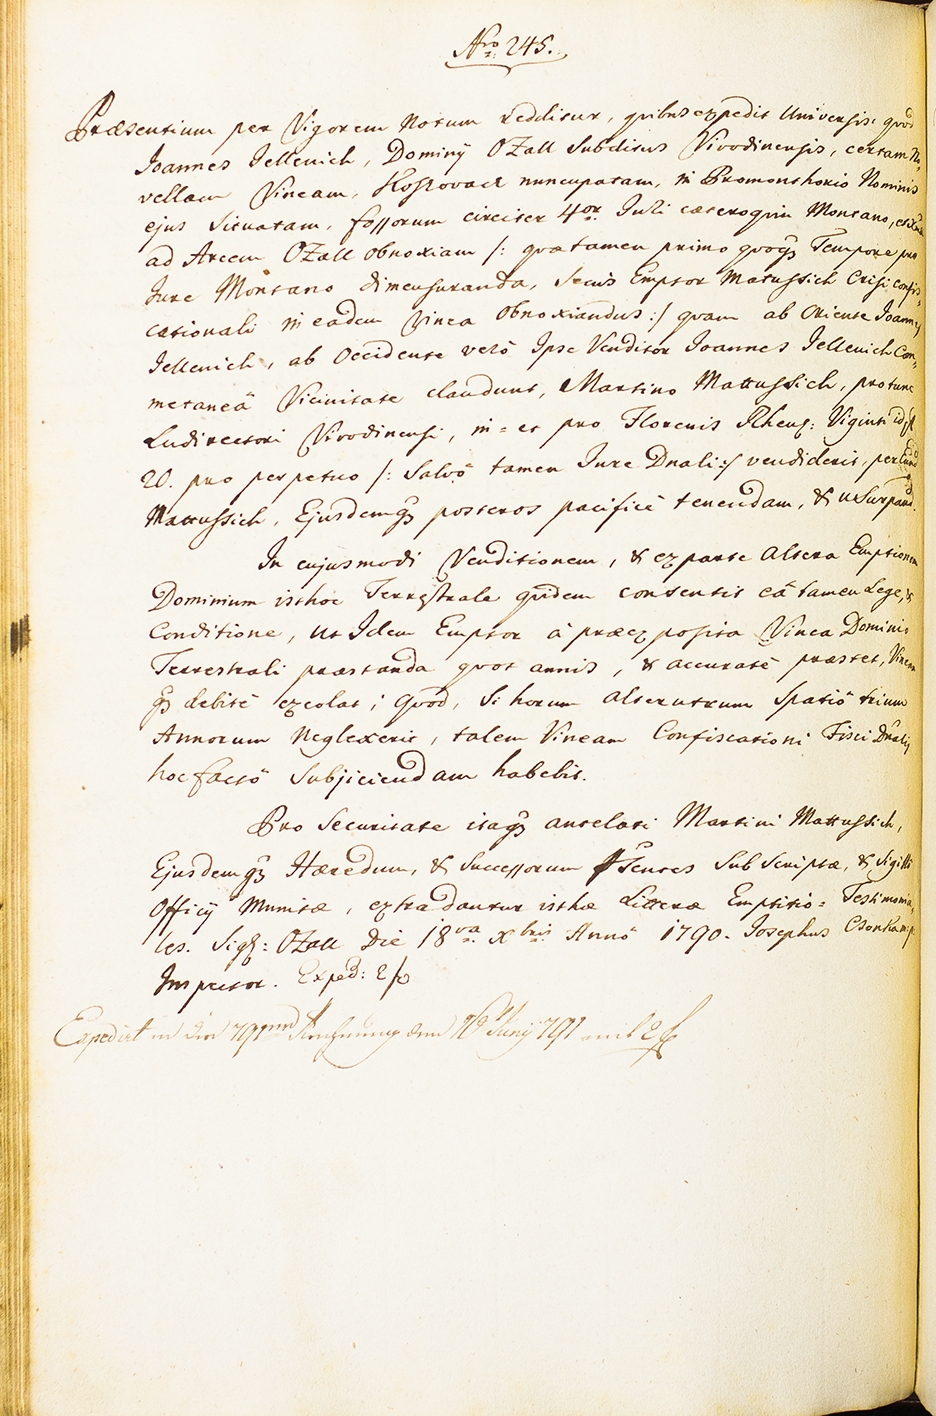 Nro 245.
Præsentium per Vigorem Notum redditur, quibus expedit Universis: quod
Joannes Jellenich, Dominÿ OZall Subditus Vivodinensis, certam No-
vellam Vineam, nuncupatam, in Promonthorio Nominis
ejus Situatam, fossorum circiter 4or. Juri cæteroquin Montano,
ad Arcem OZall obnoxiam /: quæ tamen primo quoqꝫ Tempore pro
Jure Montano dimensuranda, Secus Emptor Matussich Crisi confis-
cationali in eadem Vinea Obnoxiandus :/ quam ab Oriente Joannes
Jellenich, ab Occidente verò Ipse Venditor Joannes Jellenich Con-
metaneâ Vicinitate claudunt, Martino Mattussich, pro tunc
Ludirectori Vivodinensi, in = et pro Florenis Rhens: Viginti id est
20. pro perpetuo /: Salvô tamen Jure Dnali :/ vendiderit, per Eund
Mattussich, Ejusdemqꝫ posteros pacificè tenendam, & usurpand.
In cujusmodi Venditionem, & ex parte altera Emptionem
Dominium isthoc Terrestrale quidem consentit eâ tamen Lege, &
Conditione, ut Idem Emptor à præexposita Vinea Dominio
Terrestrali præstanda quot annis, & accuratè præstet, Vineam
qꝫ debitè excolat; quod, Si horum alterutrum Spatiô trium
Annorum Neglexerit, talem Vineam Confiscationi Fisci Dnalis
hoc factô Subjiciendam habebit.
Pro Securitate itaqꝫ antelati Martini Mattussich,
Ejusdemqꝫ Hæredum, & Successorum Præsentes Subscriptæ, & Sigillo
Officÿ Munitæ, extradantur isthæ Litteræ Emptitio = Testimonia-
les. Sigꝫ: OZall Die 18va. Xbris Annô 1790. Josephus
Inspector. Exped: 2 f
Expedirt in der 791 Rechnung den Junÿ 791 mit 2 f